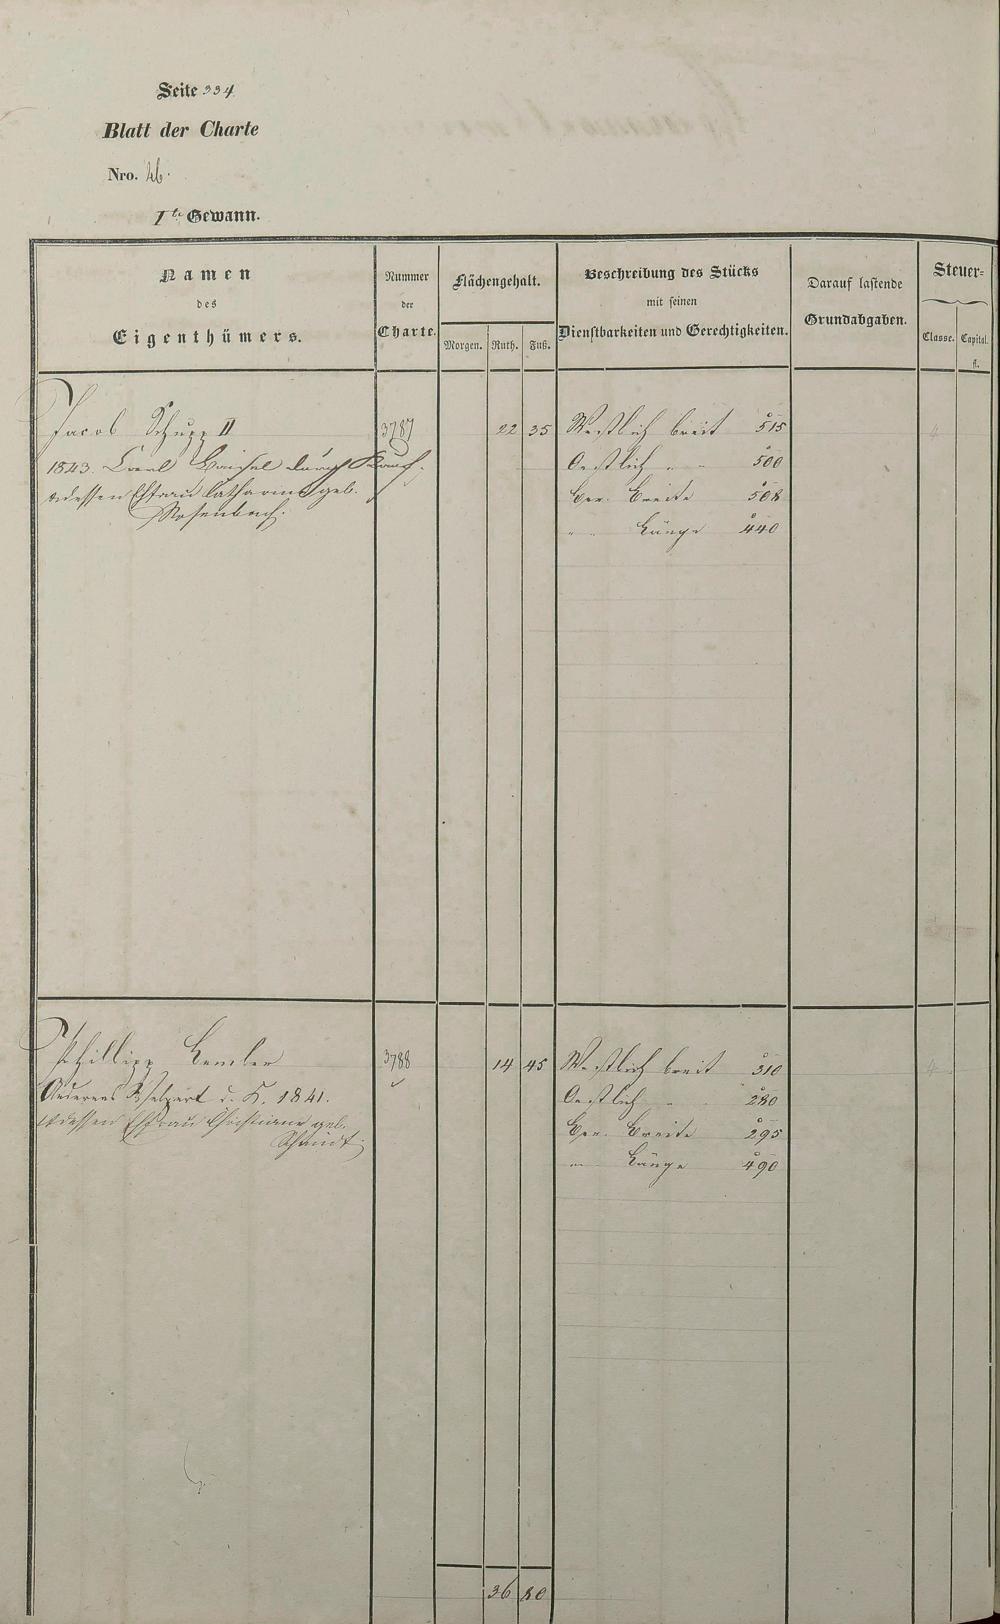 Seite 334
Blatt der Charte
Nro. 26.
1te Gewann.
Namen
des
Eigenthümers.
Nummer
der
Charte.
Flächengehalt.
Morgen. Ruth. Fuß.
Beschreibung des Stücks
mit seinen
Dienstbarkeiten und Gerechtigkeiten.
Darauf lastende
Grundabgaben.
Steuer=
Classe. Capital.
fl.
Jacob Schupp II 3787 22 35 Westlich breit 515 4
1843. Carl durch Kauf. Oestlich " " 500
u dessen Ehfrau Catharine geb. Ber. Breite 508
Rosenbach. " " Länge 440
Phillipp Kemler 3788 14 45 Westlich breit 310 4
d. K. 1841. Oestlich " " 280
u dessen Ehfrau Christiane geb. Ber. Breite 295
Schmidt. " Länge 490
36 80